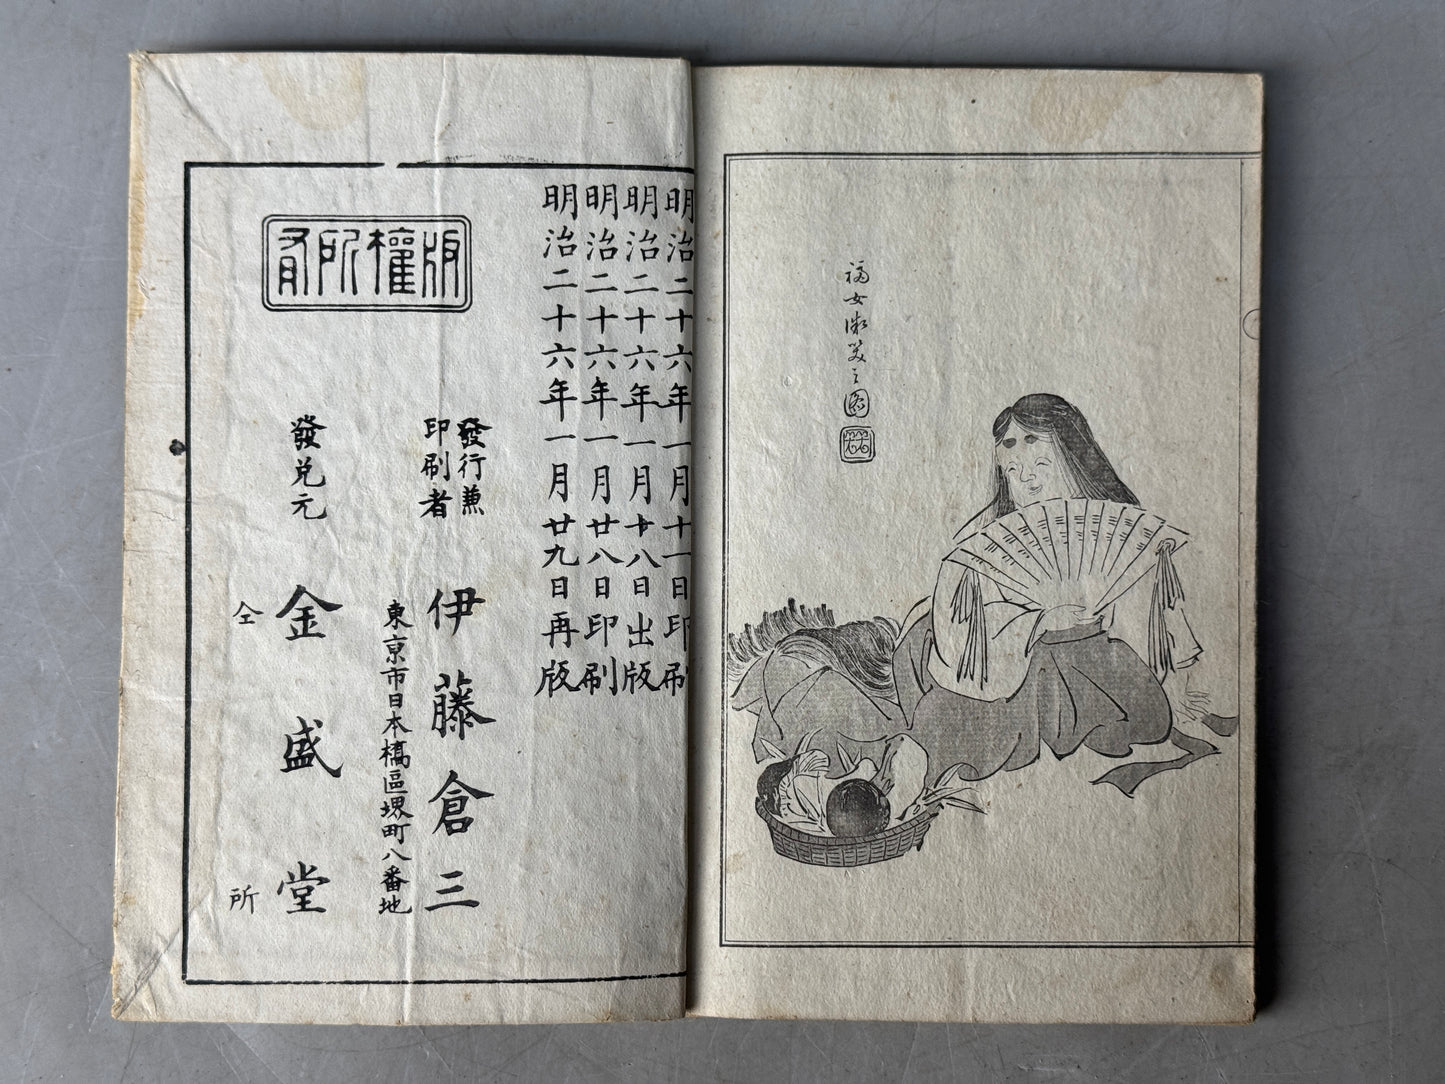 福女微笑之圖
明治二十六年一月十一日印刷
明治二十六年一月十八日出版
明治二十六年一月廿八日印刷
明治二十六年一月廿九日再版
發行兼
印刷者
伊藤倉三
東京市日本橋區堺町八番地
版權所有
發兌元
金盛堂
仝所